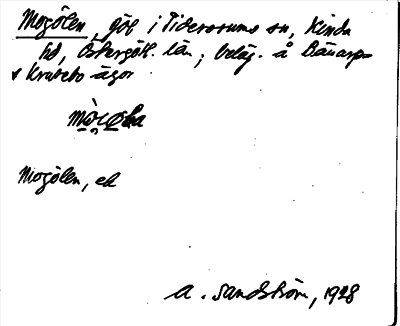 Mogölen, göl i Tidersrums sn, Kinda
hd, Östergötl. län; beläg. å Bänarps
& Krabebo ägor
Mogölen, ek
A. Sandström, 1928